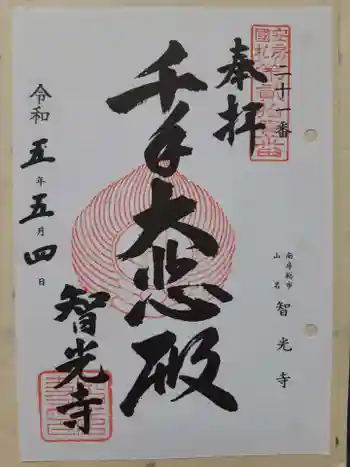 二十一番
奉拝
千手大悲殿
令和五年五月四日
智光寺
南房総市
山名
智光寺